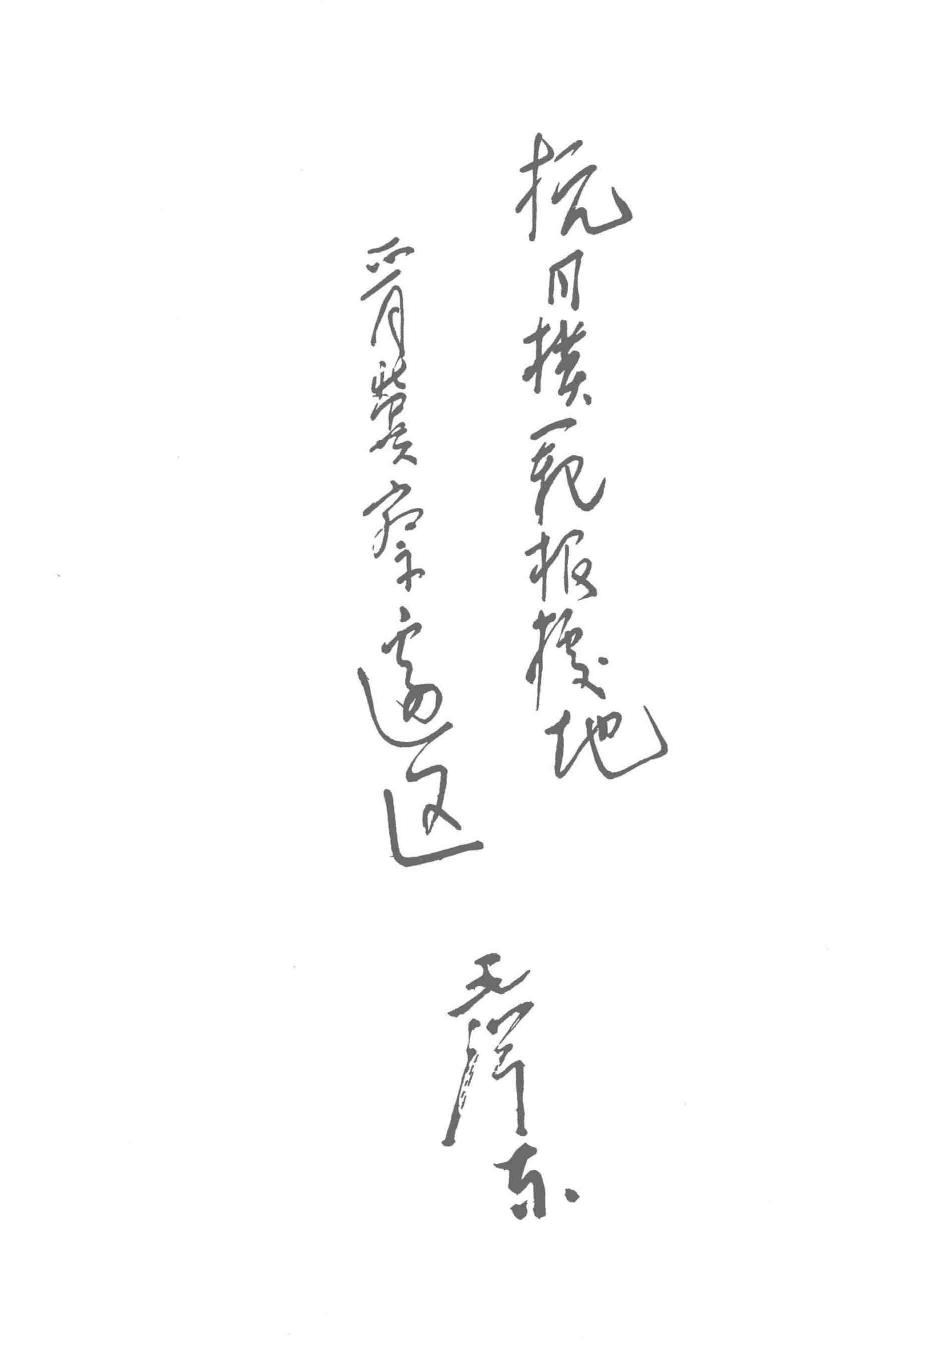 抗日模范根据地
晋冀察边区
毛泽东